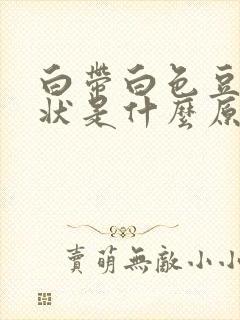 白帶白色豆
狀是什麼原
賣萌無敵小小